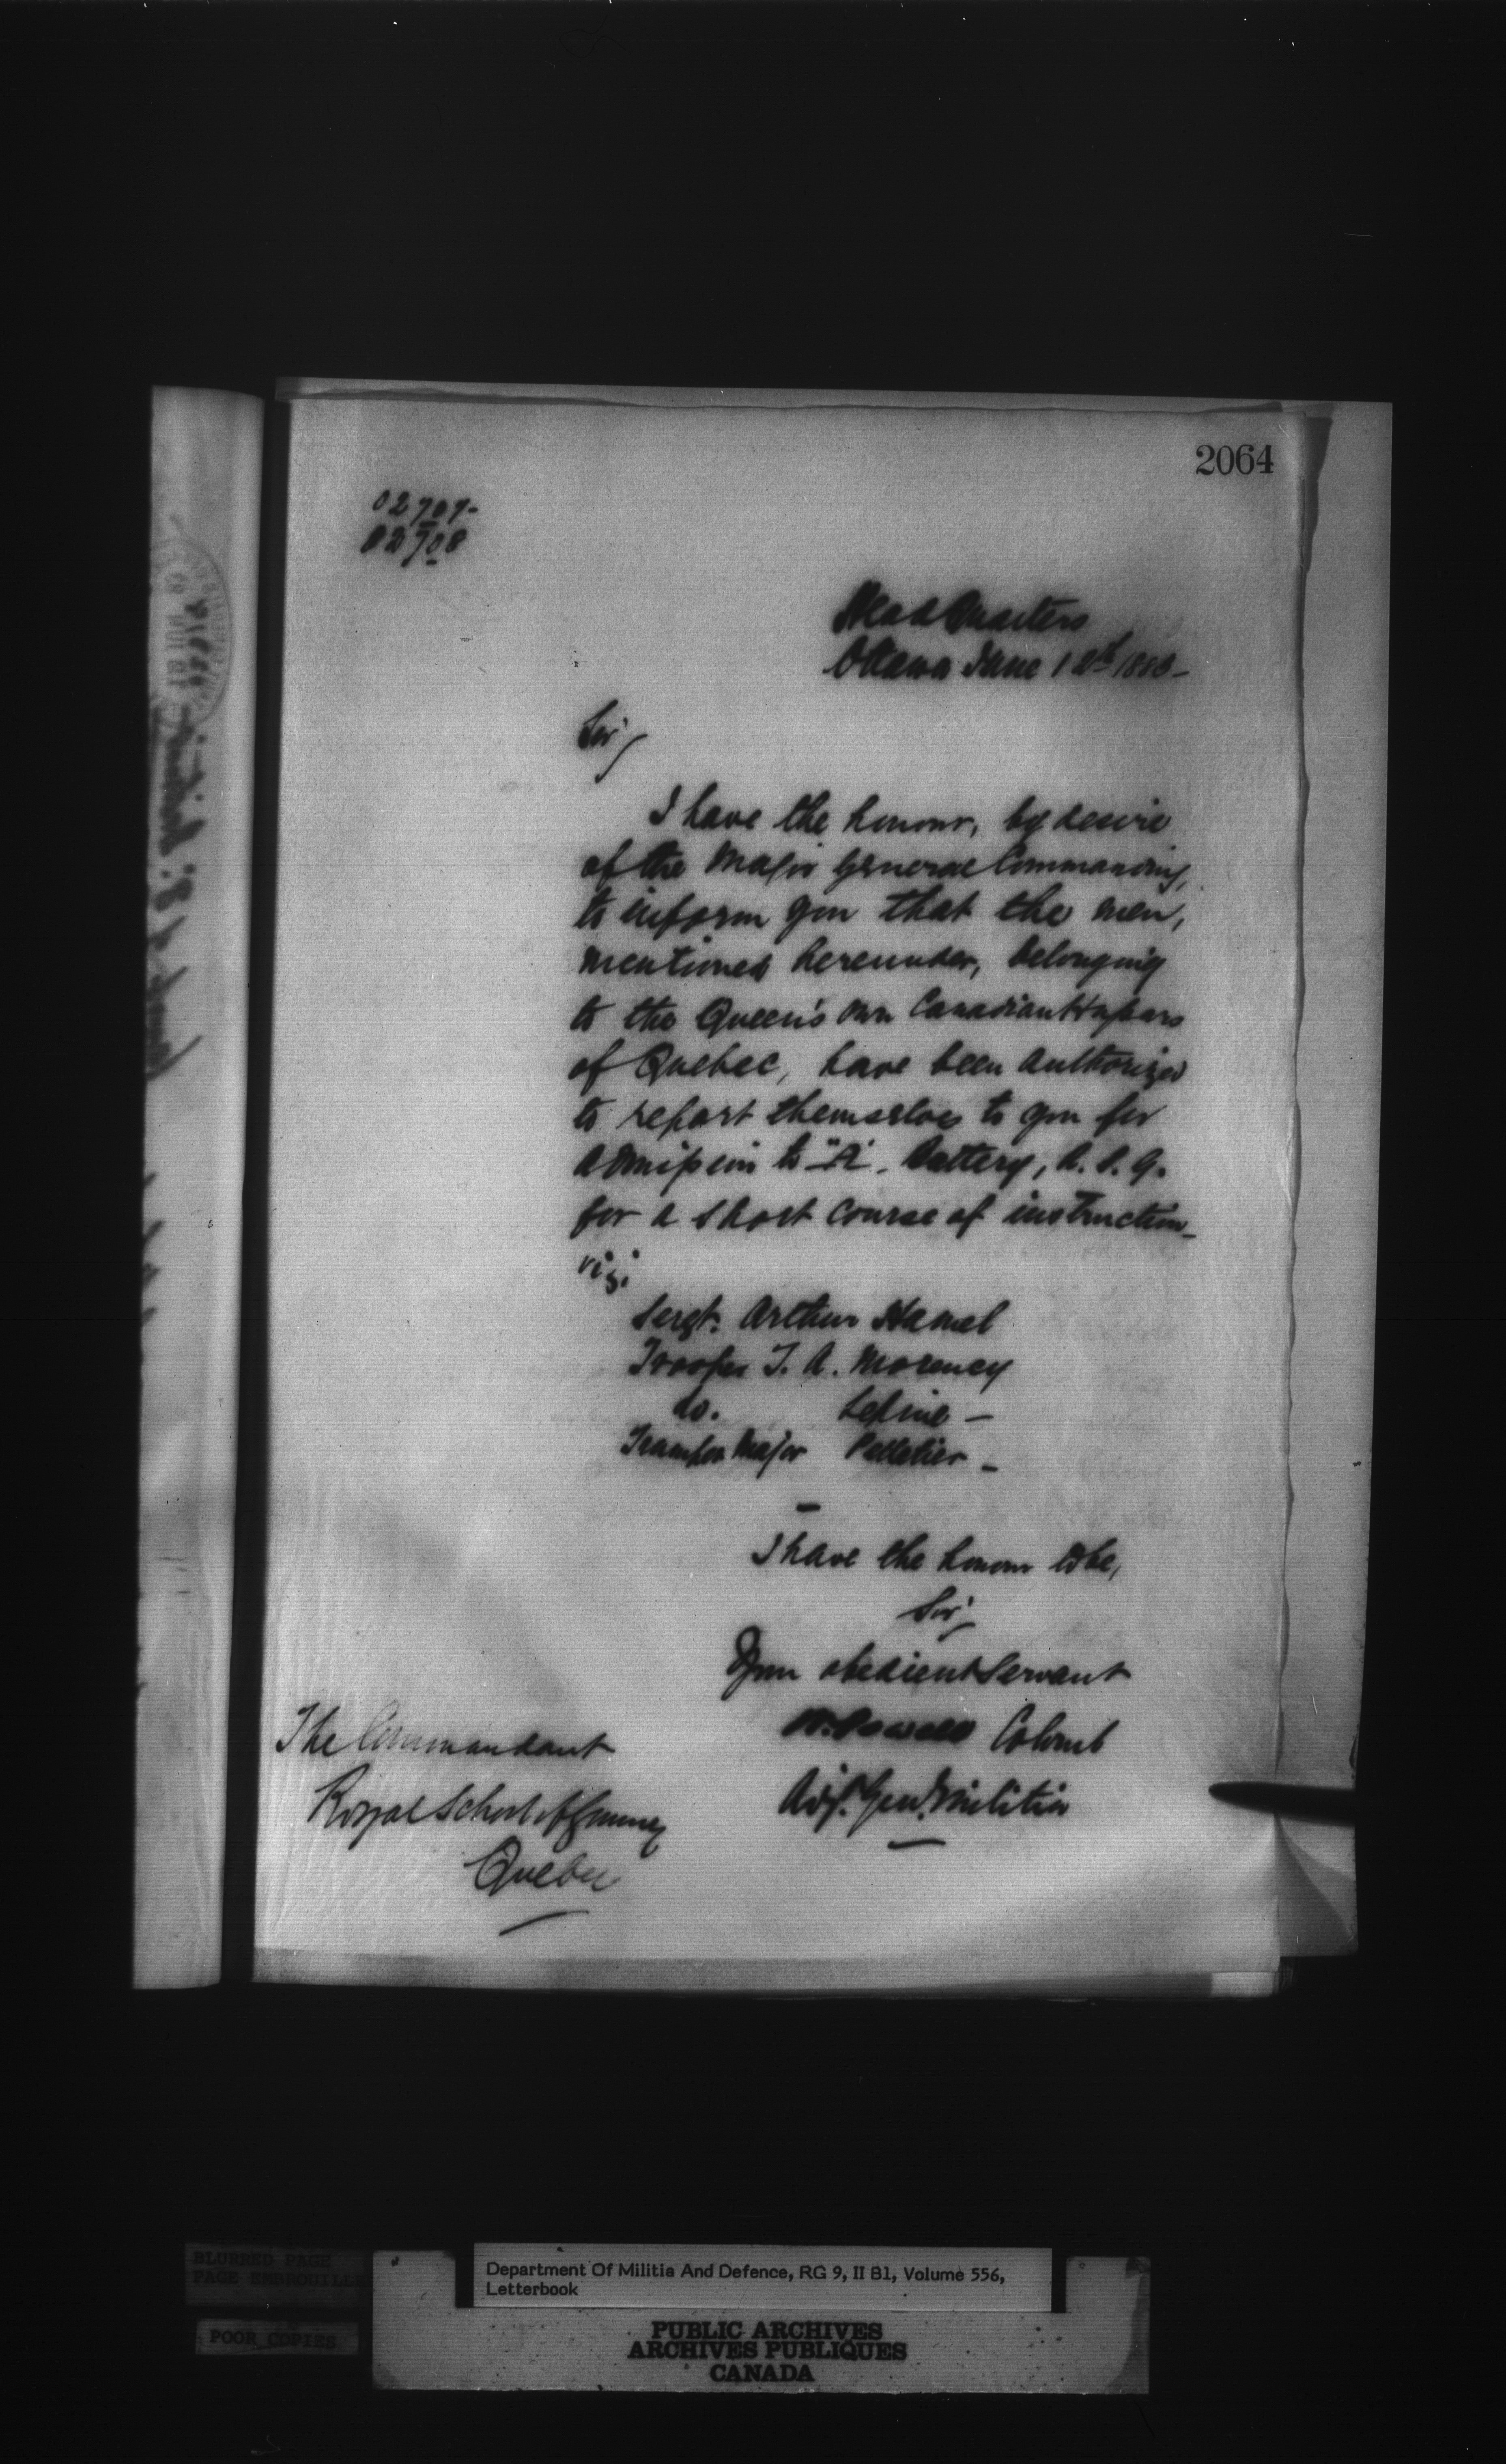 2064
02707-
02708
Head Quarters
Ottawa June 12th 1880-
Sir,
I have the honour, by desire
of the Major General Commanding,
to inform you that the men,
mentioned hereunder, belonging
to the Queen's Own Canadian Hussars
of Quebec, have been authorized
to report themselves to you for
admission to "A" Battery,
for a short course of instruction-
viz:
Sergt. Arthur Hamel
Trooper J. A. Morency
do. Lepine -
Trumpet Major Pelletier -
I have the honour to be,
Sir,
Your obedient Servant
W. Powell Colonel
Adj. Genl. Militia
The Commandant
Royal School of Gunnery
Quebec
BLURRED PAGE
PAGE EMBROUILLE
POOR COPIES
Department Of Militia And Defence, RG 9, II B1, Volume 556,
Letterbook
PUBLIC ARCHIVES
ARCHIVES PUBLIQUES
CANADA